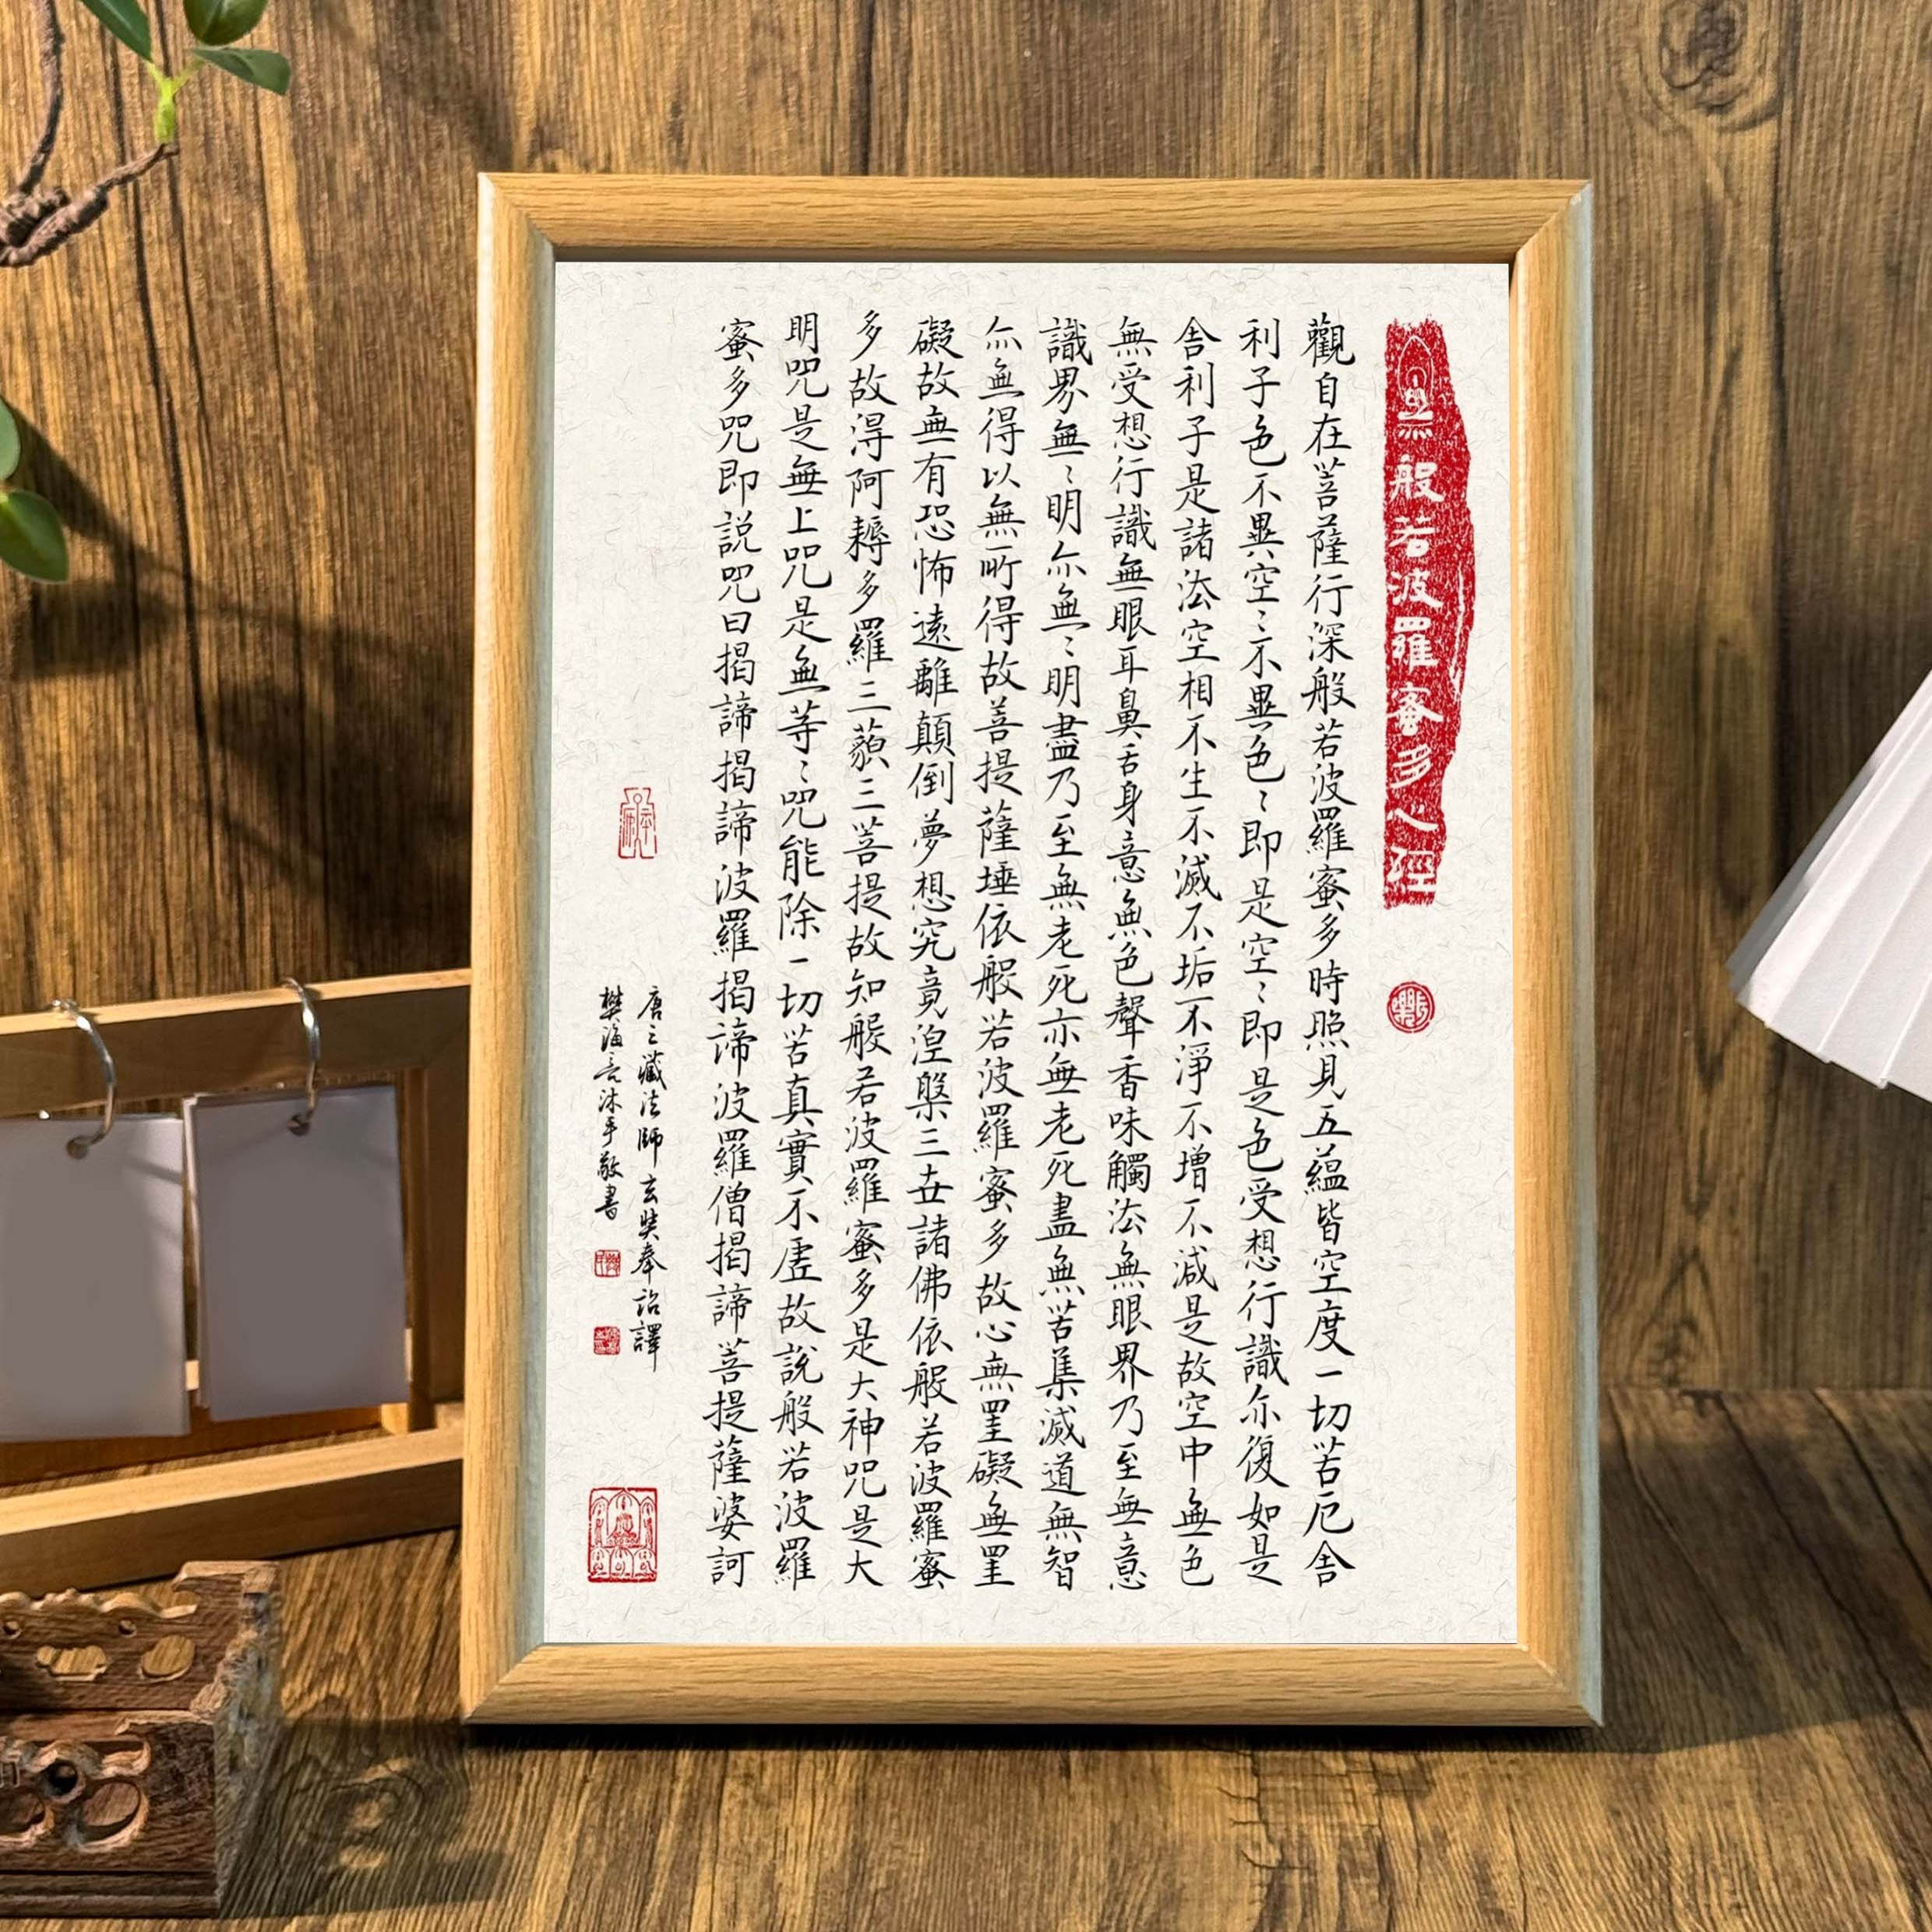 般若波羅蜜多心經
觀自在菩薩行深般若波羅蜜多時照見五蘊皆空度一切苦厄舍
利子色不異空〻不異色〻即是空〻即是色受想行識亦復如是
舍利子是諸法空相不生不滅不垢不淨不增不減是故空中無色
無受想行識無眼耳鼻舌身意無色聲香味觸法無眼界乃至無意
識界無〻明亦無〻明盡乃至無老死亦無老死盡無苦集滅道無智
亦無得以無所得故菩提薩埵依般若波羅蜜多故心無罣礙無罣
礙故無有恐怖遠離顛倒夢想究竟涅槃三世諸佛依般若波羅蜜
多故得阿耨多羅三藐三菩提故知般若波羅蜜多是大神咒是大
明咒是無上咒是無等〻咒能除一切苦真實不虛故說般若波羅
蜜多咒即説咒曰揭諦揭諦波羅揭諦波羅僧揭諦菩提薩婆訶
唐三藏法師玄奘奉詔譯
樊海沐手敬書